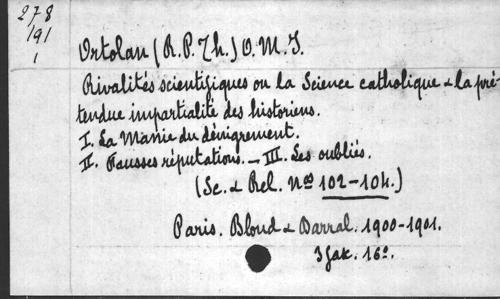 278
/91
1
Ortolan (R. P. Th.) O. M. I.
Rivalités scientifiques ou la Science catholique & la pré-
tendue impartialité des historiens.
I. La Manie du dénigrement.
II. Fausses réputations. – III. Les oubliés.
(Sc. & Rel. Nos 102-104.)
Paris. Bloud & Barral. 1900-1901.
3 fak. 16o.